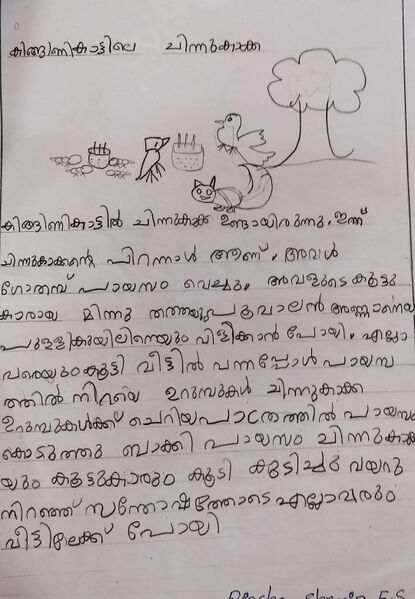 കിങ്ങിണികാട്ടിലെ ചിന്നുകാക്ക
കിങ്ങിണികാട്ടിൽ ചിന്നുകാക്ക ഉണ്ടായിരുന്നു. ഇന്ന്
ചിന്നുകാക്കന്റെ പിറന്നാൾ ആണ്. അവൾ
ഗോതമ്പ് പായസം വെച്ചു. അവളുടെ കൂട്ടു
കാരായ മിന്നു തത്തയും പൂവാലൻ അണ്ണാനെയും
പുള്ളികുയിലിനെയും വിളിക്കാൻ പോയി. എല്ലാ
വരെയും കൂട്ടി വീട്ടിൽ വന്നപ്പോൾ പായസ
ത്തിൽ നിറയെ ഉറുമ്പുകൾ ചിന്നുകാക്ക
ഉറുമ്പുകൾക്ക് ചെറിയപാത്രത്തിൽ പായസം
കൊടുത്തു ബാക്കി പായസം ചിന്നുകാക്ക
യും കൂട്ടുകാരും കൂടി കുടിച്ചു വയറു
നിറഞ്ഞ് സന്തോഷത്തോടെ എല്ലാവരും
വീട്ടിലേക്ക് പോയി